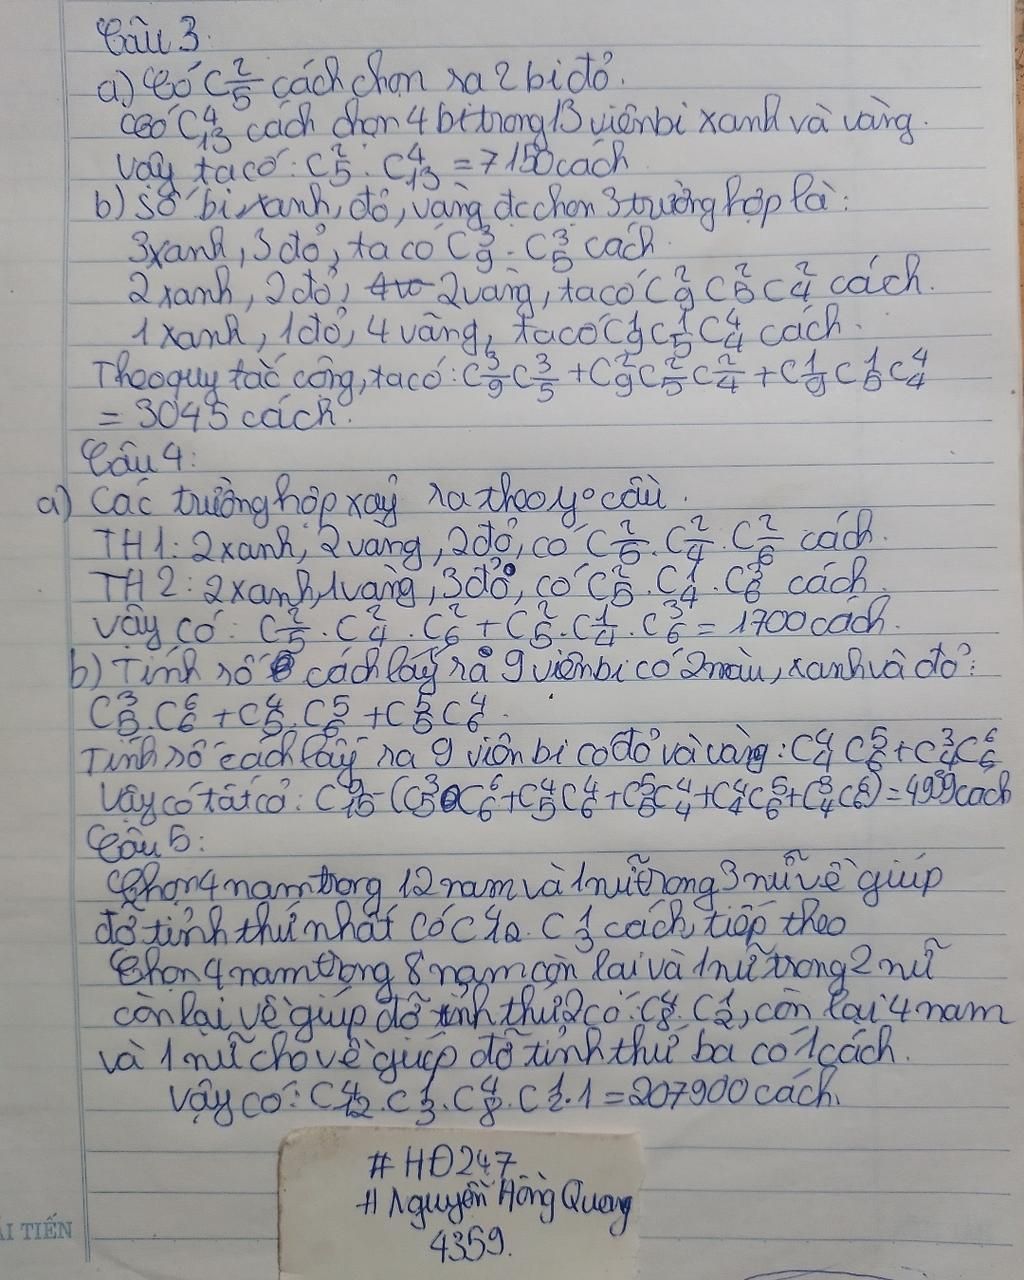 Câu 3.
a) Có C²₅ cách chọn ra 2 bi đỏ.
Có C⁴₁₃ cách chọn 4 bi trong 13 viên bi xanh và vàng.
Vậy ta có: C²₅ . C⁴₁₃ = 7150 cách
b) Số bi xanh, đỏ, vàng đc chọn 3 trường hợp là:
3 xanh, 3 đỏ, ta có C³₉ . C³₅ cách.
2 xanh, 2 đỏ, 2 vàng, ta có C²₉ C²₅ C²₄ cách.
1 xanh, 1 đỏ, 4 vàng, ta có C¹₉ C¹₅ C⁴₄ cách.
Theo quy tắc cộng, ta có: C³₉ C³₅ + C²₉ C²₅ C²₄ + C¹₉ C¹₅ C⁴₄
= 3045 cách.
Câu 4:
a) Các trường hợp xảy ra theo yo cầu.
TH1: 2 xanh, 2 vàng, 2 đỏ, có C²₅ . C²₄ . C²₆ cách.
TH2: 2 xanh, 1 vàng, 3 đỏ, có C²₅ . C¹₄ . C³₆ cách.
Vậy có: C²₅ . C²₄ . C²₆ + C²₅ . C¹₄ . C³₆ = 1700 cách.
b) Tính số cách lấy ra 9 viên bi có 2 màu, xanh và đỏ:
C³₅ . C⁶₆ + C⁴₅ . C⁵₆ + C⁵₅ C⁴₆.
Tính số cách lấy ra 9 viên bi có đỏ và vàng: C⁴₄ C⁵₆ + C³₄ C⁶₆
Vậy có tất cả: C⁹₁₅ - (C³₅ C⁶₆ + C⁴₅ C⁴₆ + C⁵₅ C⁴₄ + C⁴₄ C⁵₆ + C³₄ C⁶₆) = 4939 cách
Câu 5:
Chọn 4 nam trong 12 nam và 1 nữ trong 3 nữ về giúp
đỡ tỉnh thứ nhất có C⁴₁₂ . C¹₃ cách tiếp theo
Chọn 4 nam trong 8 nam còn lại và 1 nữ trong 2 nữ
còn lại về giúp đỡ tỉnh thứ 2 có: C⁴₈ . C¹₂, còn lại 4 nam
và 1 nữ cho về giúp đỡ tỉnh thứ ba có 1 cách.
Vậy có: C⁴₁₂ . C¹₃ . C⁴₈ . C¹₂ . 1 = 207900 cách.
# HĐ247
# Nguyễn Hồng Quang
4359.
ẢI TIẾN